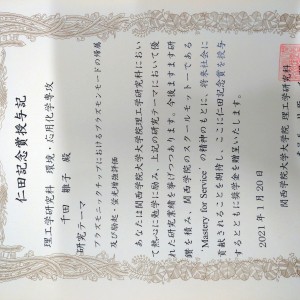 仁田記念賞授与記
理工学研究科 環境・応用化学専攻
千田 雅子 殿
研究テーマ
プラズモニックチップにおけるプラズモンモードの帰属
及び励起・蛍光増強評価
あなたは関西学院大学大学院理工学研究科におい
て熱心に勉学に励み、上記の研究テーマにおいて優
れた研究業績を挙げつつあります。今後ますます研
鑽を積み、関西学院のスクールモットーである
“Mastery for Service” の精神のもとに、将来社会に
貢献されることを期待し、ここに仁田記念賞を授与
するとともに奨学金を贈呈いたします。
2021年1月20日
関西学院大学大学院 理工学研究科